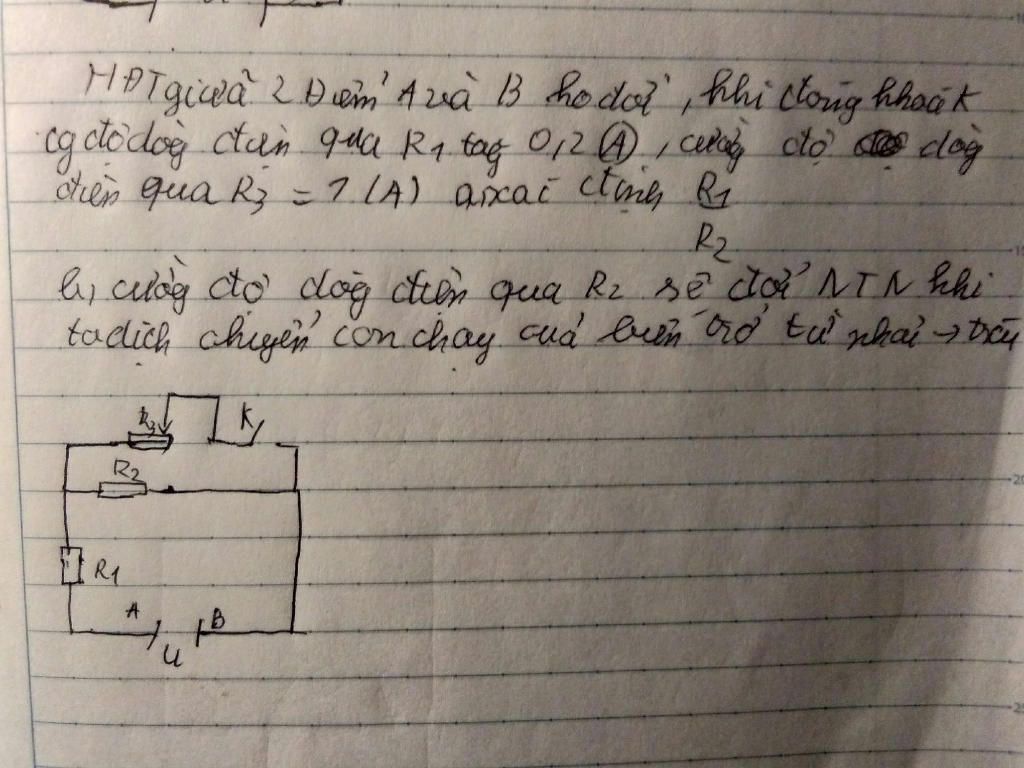 HĐT giữa 2 Điểm A và B ko đổi, khi đóng khoá K
cg độ dòg điện qua R1 tăg 0,2 (A), cườg độ dòg
điện qua R3 = 1 (A) a, xác định R1
R2
b, cườg độ dòg điện qua R2 sẽ đổi NTN khi
ta dịch chuyển con chạy của biến trở từ phải → trái
R3
K
R2
R1
A
B
U